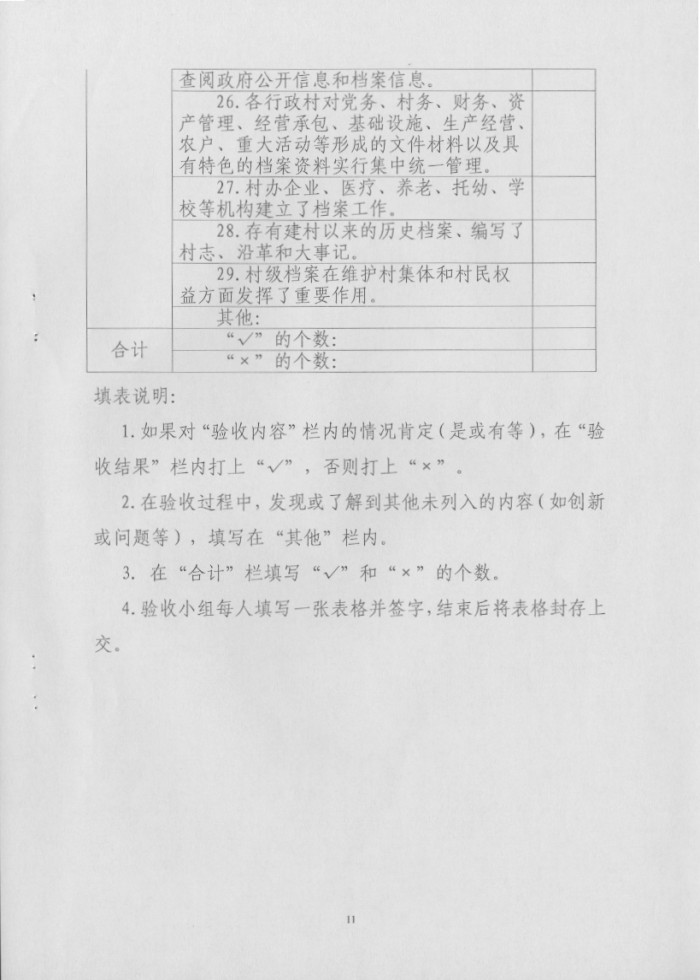 查阅政府公开信息和档案信息。
26.各行政村对党务、村务、财务、资
产管理、经营承包、基础设施、生产经营、
农户、重大活动等形成的文件材料以及具
有特色的档案资料实行集中统一管理。
27.村办企业、医疗、养老、托幼、学
校等机构建立了档案工作。
28.存有建村以来的历史档案、编写了
村志、沿革和大事记。
29.村级档案在维护村集体和村民权
益方面发挥了重要作用。
其他:
合计
“√”的个数:
“×”的个数:
填表说明:
1.如果对“验收内容”栏内的情况肯定(是或有等),在“验
收结果”栏内打上“√”,否则打上“×”。
2.在验收过程中,发现或了解到其他未列入的内容(如创新
或问题等),填写在“其他”栏内。
3. 在“合计”栏填写“√”和“×”的个数。
4.验收小组每人填写一张表格并签字,结束后将表格封存上
交。
11